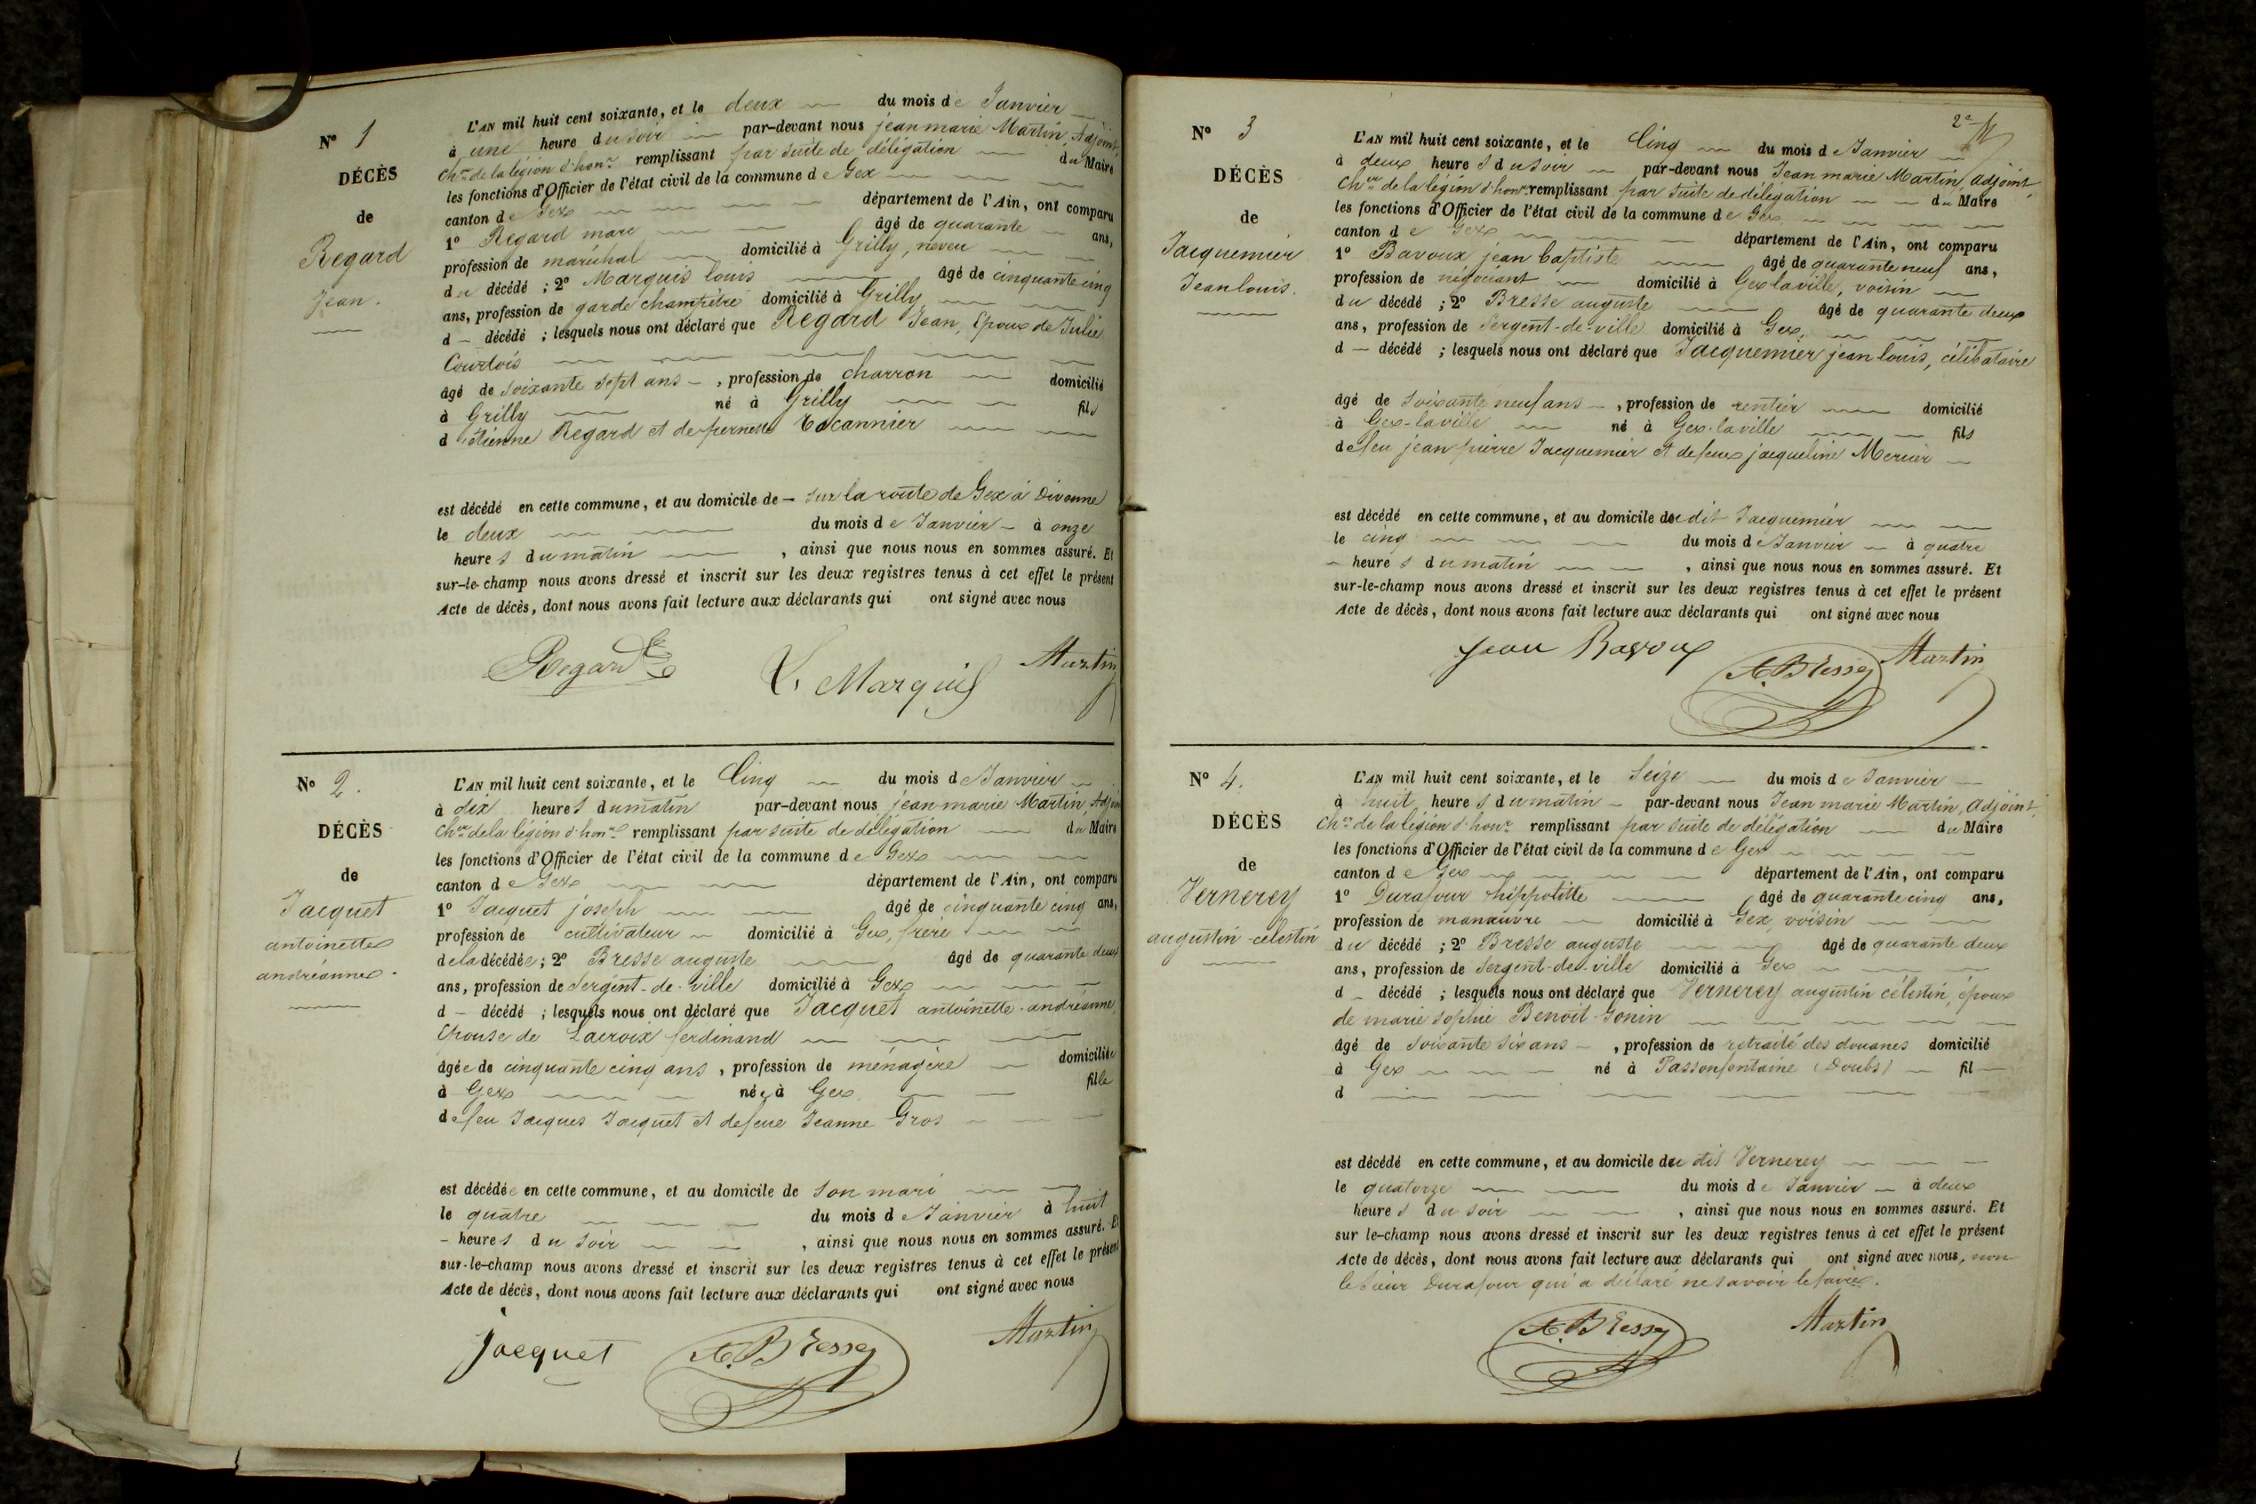 N° 1
DÉCÈS
de
Regard
Jean.
L'AN mil huit cent soixante, et le deux du mois de Janvier
à une heure du soir par-devant nous jean marie Martin, Adjoint,
Cher de la légion d'honr remplissant par suite de délégation du Maire
les fonctions d'Officier de l'état civil de la commune de Gex
canton de Gex département de l'Ain, ont comparu
1° Regard marc âgé de quarante ans,
profession de maréchal domicilié à Grilly, neveu
du décédé ; 2° Marquis louis âgé de cinquante cinq
ans, profession de garde champêtre domicilié à Grilly
d — décédé ; lesquels nous ont déclaré que Regard Jean, Epoux de Julie
Courtois
âgé de soixante sept ans —, profession de charron domicilié
à Grilly né à Grilly fils
d'Etienne Regard et de pernette
est décédé en cette commune, et au domicile de — sur la route de Gex à Divonne
le deux du mois de Janvier — à onze
heures du matin , ainsi que nous nous en sommes assuré. Et
sur-le-champ nous avons dressé et inscrit sur les deux registres tenus à cet effet le présent
Acte de décès, dont nous avons fait lecture aux déclarants qui ont signé avec nous
Regard L. Marquis Martin
N° 2.
DÉCÈS
de
Jacquet
antoinette
andréanne.
L'AN mil huit cent soixante, et le Cinq du mois de Janvier
à dix heures du matin par-devant nous jean marie Martin, Adjoin
Chor de la légion d'honr remplissant par suite de délégation du Maire
les fonctions d'Officier de l'état civil de la commune de Gex
canton de Gex département de l'Ain, ont comparu
1° Jacquet joseph âgé de cinquante cinq ans,
profession de cultivateur domicilié à Gex, frère
de la décédée ; 2° Bresse auguste âgé de quarante deux
ans, profession de Sergent-de-ville domicilié à Gex
d — décédé ; lesquels nous ont déclaré que Jacquet antoinette-andréanne,
Epouse de Lacroix ferdinand
âgée de cinquante cinq ans, profession de ménagère domiciliée
à Gex née à Gex fille
de feu Jacques Jacquet et de feue Jeanne Gros
est décédée en cette commune, et au domicile de son mari
le quatre du mois de Janvier à huit
- heures du soir , ainsi que nous nous en sommes assuré. Et
sur-le-champ nous avons dressé et inscrit sur les deux registres tenus à cet effet le présent
Acte de décès, dont nous avons fait lecture aux déclarants qui ont signé avec nous
Jacquet A. Bresse Martin
2e
N° 3
DÉCÈS
de
Jacquemier
Jean louis.
L'AN mil huit cent soixante, et le Cinq du mois de Janvier
à deux heures du soir par-devant nous Jean marie Martin, adjoint,
Cher de la légion d'honr remplissant par suite de délégation du Maire
les fonctions d'Officier de l'état civil de la commune de Gex
canton de Gex département de l'Ain, ont comparu
1° Bavoux jean baptiste âgé de quarante neuf ans,
profession de négociant domicilié à Gex la ville, voisin
du décédé ; 2° Bresse auguste âgé de quarante deux
ans, profession de Sergent-de-ville domicilié à Gex,
d — décédé ; lesquels nous ont déclaré que Jacquemier jean louis, célibataire
âgé de soixante neuf ans —, profession de rentier domicilié
à Gex-la ville né à Gex-la ville fils
de feu jean pierre Jacquemier et de feue jacqueline Mercier
est décédé en cette commune, et au domicile du dit Jacquemier
le cinq du mois de Janvier — à quatre
- heures du matin , ainsi que nous nous en sommes assuré. Et
sur-le-champ nous avons dressé et inscrit sur les deux registres tenus à cet effet le présent
Acte de décès, dont nous avons fait lecture aux déclarants qui ont signé avec nous
Jean Bavoux A. Bresse Martin
N° 4.
DÉCÈS
de
Vernerey
augustin-celestin
L'AN mil huit cent soixante, et le Seize du mois de Janvier
à huit heures du matin — par-devant nous Jean marie Martin, adjoint,
Cher de la légion d'honr remplissant par suite de délégation du Maire
les fonctions d'Officier de l'état civil de la commune de Gex
canton de Gex département de l'Ain, ont comparu
1° Durafour hippolitte âgé de quarante cinq ans,
profession de manœuvre domicilié à Gex, voisin
du décédé ; 2° Bresse auguste âgé de quarante deux
ans, profession de Sergent-de-ville domicilié à Gex
d — décédé ; lesquels nous ont déclaré que Vernerey augustin célestin, époux
de marie sophie Benoit-Gonin
âgé de soixante six ans —, profession de retraité des douanes domicilié
à Gex né à Passonfontaine (Doubs) fil
d
est décédé en cette commune, et au domicile du dit Vernerey
le quatorze du mois de Janvier — à deux
heures du soir , ainsi que nous nous en sommes assuré. Et
sur le-champ nous avons dressé et inscrit sur les deux registres tenus à cet effet le présent
Acte de décès, dont nous avons fait lecture aux déclarants qui ont signé avec nous, non
le sieur Durafour qui a déclaré ne savoir le faire.
A. Bresse Martin